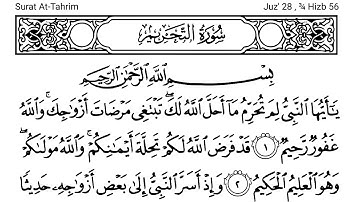 Surat At-Tahrim Juz' 28 , ¾ Hizb 56
سُورَةُ التَّحْرِيمِ
بِسْمِ اللَّهِ الرَّحْمَٰنِ الرَّحِيمِ
يَا أَيُّهَا النَّبِيُّ لِمَ تُحَرِّمُ مَا أَحَلَّ اللَّهُ لَكَ ۖ تَبْتَغِي مَرْضَاتَ أَزْوَاجِكَ ۚ وَاللَّهُ
غَفُورٌ رَّحِيمٌ ١ قَدْ فَرَضَ اللَّهُ لَكُمْ تَحِلَّةَ أَيْمَانِكُمْ ۚ وَاللَّهُ مَوْلَاكُمْ ۖ
وَهُوَ الْعَلِيمُ الْحَكِيمُ ٢ وَإِذْ أَسَرَّ النَّبِيُّ إِلَىٰ بَعْضِ أَزْوَاجِهِ حَدِيثًا